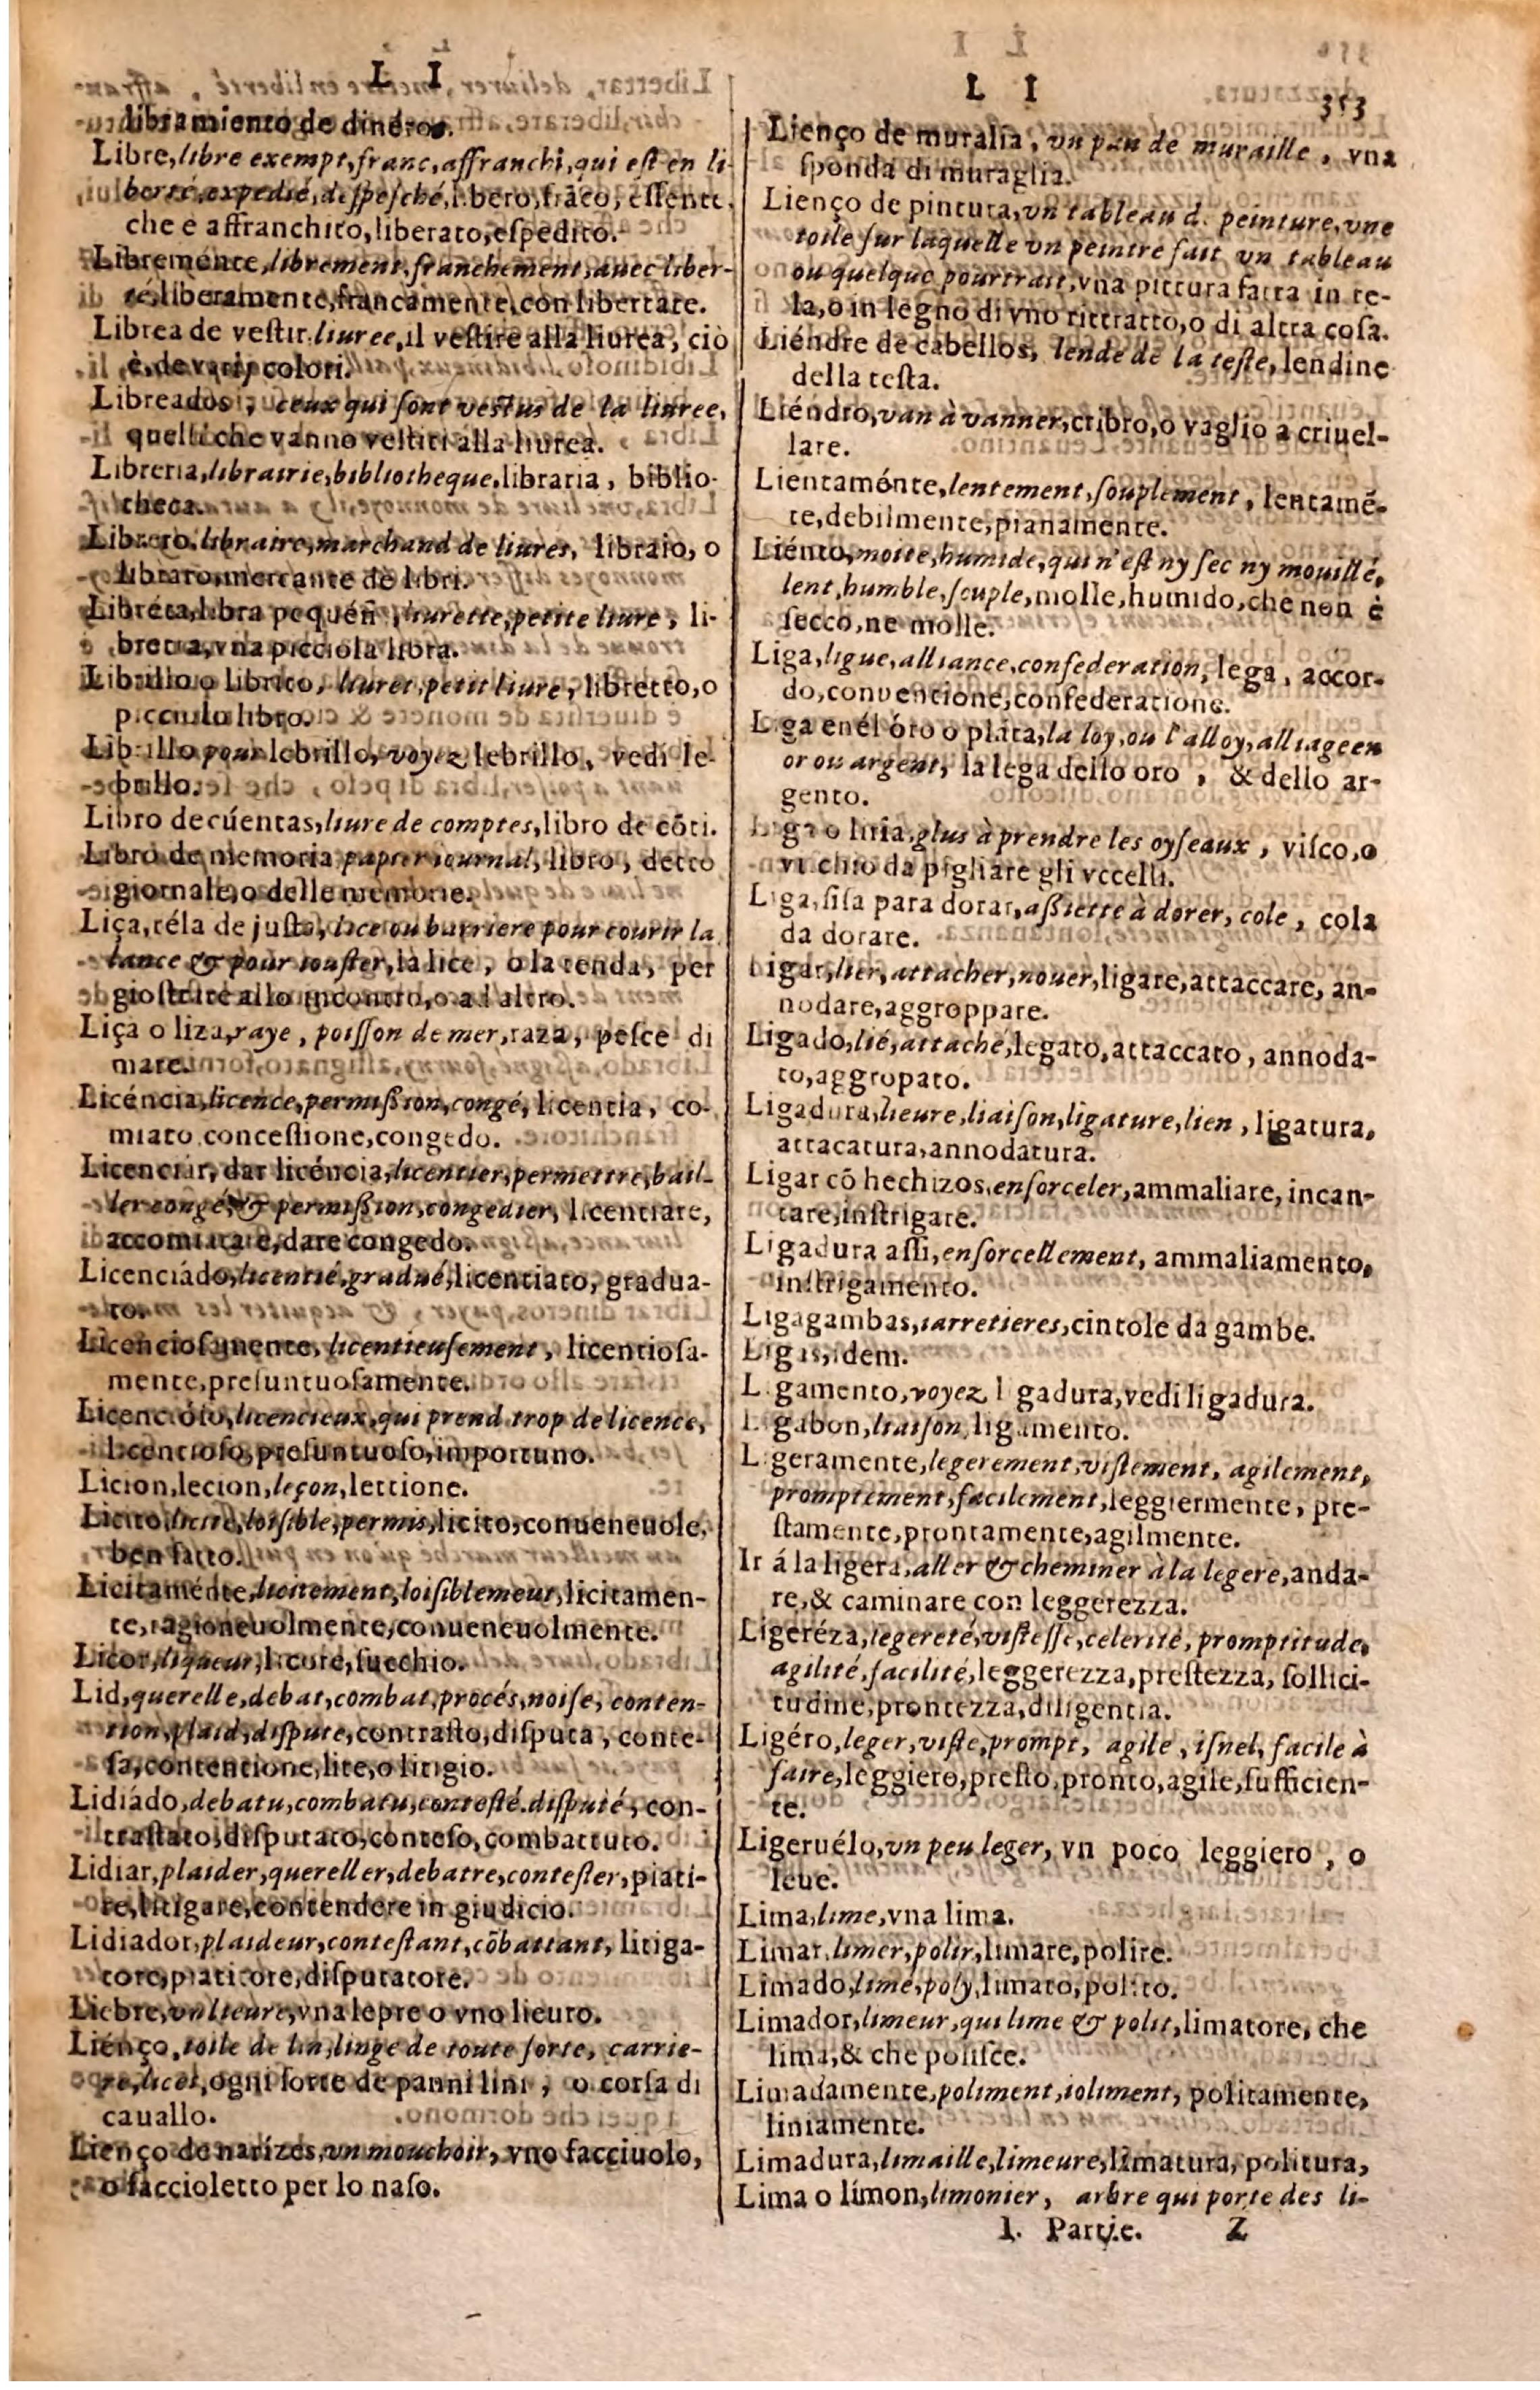 L I
libramiento de dineros.
Libre, libre exempt, franc, affranchi, qui eſt en li-
berté, expedié, deſpeſché, libero, frāco, eſſente,
che e affranchito, liberato, eſpedito.
Libreménte, librement, franchement, auec liber-
té, liberamente, francamente, con libertate.
Librea de veſtir, liuree, il veſtire alla liurea, ciò
è, de varij colori.
Libreados, ceux qui ſont veſtus de la liuree,
quelli che vanno veſtiti alla liurea.
Libreria, librairie, bibliotheque, libraria, biblio-
theca.
Librero, libraire, marchand de liures, libraio, o
libraro, mercante de libri.
Libréta, libra pequéñ, liurette, petite liure, li-
bretta, vna picciola libra.
Librillo o librico, liuret, petit liure, libretto, o
picciolo libro.
Librillo pour lebrillo, voyez lebrillo, vedi le-
brillo.
Libro de cúentas, liure de comptes, libro de cōti.
Libro de memoria papier iournal, libro, detto
giornale, o delle memorie.
Liça, téla de juſta, lice ou barriere pour courir la
lance & pour iouſter, la lice, o la tenda, per
gioſtrare allo incontro, o al'altro.
Liça o liza, raye, poiſſon de mer, raza, peſce di
mare.
Licéncia, licence, permiſsion, congé, licentia, co-
miato conceſtione, congedo.
Licenciar, dar licéncia, licentier, permettre, bail-
ler congé, & permiſsion, congedier, licentiare,
accomiatare, dare congedo.
Licenciádo, licentié, gradué, licentiato, gradua-
to.
Licencioſamente, licentieuſement, licentioſa-
mente, preſuntuoſamente.
Licencióſo, licencieux, qui prend trop de licence,
licentioſo, preſuntuoſo, importuno.
Licion, lecion, leçon, lettione.
Licito, licite, loiſible, permis, licito, conueneuole,
ben fatto.
Licitaménte, licitement, loiſiblemeut, licitamen-
te, ragioneuolmente, conueneuolmente.
Licor, liqueur, licore, ſucchio.
Lid, querelle, debat, combat, procés, noiſe, conten-
tion, plaid, diſpute, contraſto, diſputa, conte-
ſa, contentione, lite, o litigio.
Lidiádo, debatu, combatu, conteſté, diſputé, con-
traſtato, diſputato, conteſo, combattuto.
Lidiar, plaider, quereller, debatre, conteſter, piati-
re, litigare, contendere in giudicio.
Lidiador, plaideur, conteſtant, cōbattant, litiga-
tore, piatitore, diſputatore.
Liebre, vn lieure, vna lepre o vno lieuro.
Liénço, toile de lin, linge de toute ſorte, carrie-
re, lice, ogni ſorte de panni lini, o corſa di
cauallo.
Lienço de narízes, vn mouchoir, vno facciuolo,
o faccioletto per lo naſo.
L I
353
Lienço de muralia, vn pan de muraille, vna
ſponda di muraglia.
Lienço de pintura, vn tableau d. peinture, vne
toile ſur laquelle vn peintre fait vn tableau
ou quelque pourtrait, vna pittura fatta in te-
la, o in legno di vno rittratto, o di altra coſa.
Liéndre de cabellos, lende de la teſte, lendine
della teſta.
Liéndro, van à vanner, cribro, o vaglio a criuel-
lare.
Lientaménte, lentement, ſouplement, lentamē-
te, debilmente, pianamente.
Liénto, moite, humide, qui n'eſt ny ſec ny mouillé,
lent, humble, ſouple, molle, humido, che non è
ſecco, ne molle.
Liga, ligue, alliance, conſederation, lega, accor-
do, conuentione, confederatione.
Liga en él óro o pláta, la loy, ou l'alloy, alliage en
or ou argent, la lega dello oro, & dello ar-
gento.
Liga o liria, glus à prendre les oyſeaux, viſco, o
viſchio da pigliare gli vccelli.
Liga, ſiſa para dorar, aßiette à dorer, cole, cola
da dorare.
Ligar, lier, attacher, nouer, ligare, attaccare, an-
nodare, aggroppare.
Ligado, lié, attaché, legato, attaccato, annoda-
to, aggropato.
Ligadura, lieure, liaiſon, ligature, lien, ligatura,
attacatura, annodatura.
Ligar cō hechizos, enſorceler, ammaliare, incan-
tare, inſtrigare.
Ligadura aſſi, enſorcellement, ammaliamento,
inſtrigamento.
Ligagambas, iarretieres, cintole da gambe.
Ligas, idem.
Ligamento, voyez ligadura, vedi ligadura.
Ligabon, liaiſon, ligamento.
Ligeramente, legerement, viſtement, agilement,
promptement, facilement, leggiermente, pre-
ſtamente, prontamente, agilmente.
Ir á la ligera, aller & cheminer à la legere, anda-
re, & caminare con leggerezza.
Ligeréza, legereté, viſteſſe, celerité, promptitude,
agilité, facilité, leggerezza, preſtezza, ſollici-
tudine, prontezza, diligentia.
Ligéro, leger, viſte, prompt, agile, iſnel, facile à
faire, leggiero, preſto, pronto, agile, ſufficien-
te.
Ligeruélo, vn peu leger, vn poco leggiero, o
leue.
Lima, lime, vna lima.
Limar, limer, polir, limare, polire.
Limado, limé, poly, limato, polito.
Limador, limeur, qui lime & polit, limatore, che
lima, & che poliſce.
Limadamente, poliment, ioliment, politamente,
limamente.
Limadura, limaille, limeure, limatura, politura,
Lima o límon, limonier, arbre qui porte des li-
1. Partie. Z